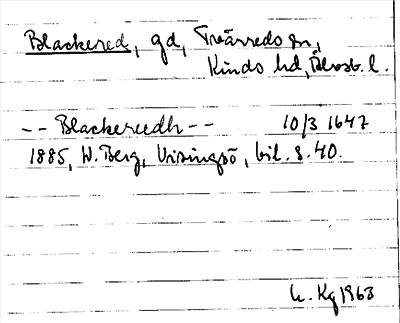 Blackered, gd, Tvärredo sn,
Kindo hd, Älvsb. l.
-- Blackereedh -- 10/3 1647
1885, W. Berg, Visingsö, bil. s. 40.
Kg 1963